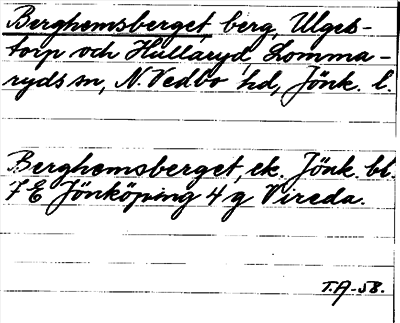 Berghemsberget, berg, Ulgels-
torp och Hullaryd, Lomma-
ryds sn, N. Vedbo hd, Jönk. l.
Berghemsberget, ek. Jönk. bl.
7 E Jönköping 4 g Vireda.
T.A-58.